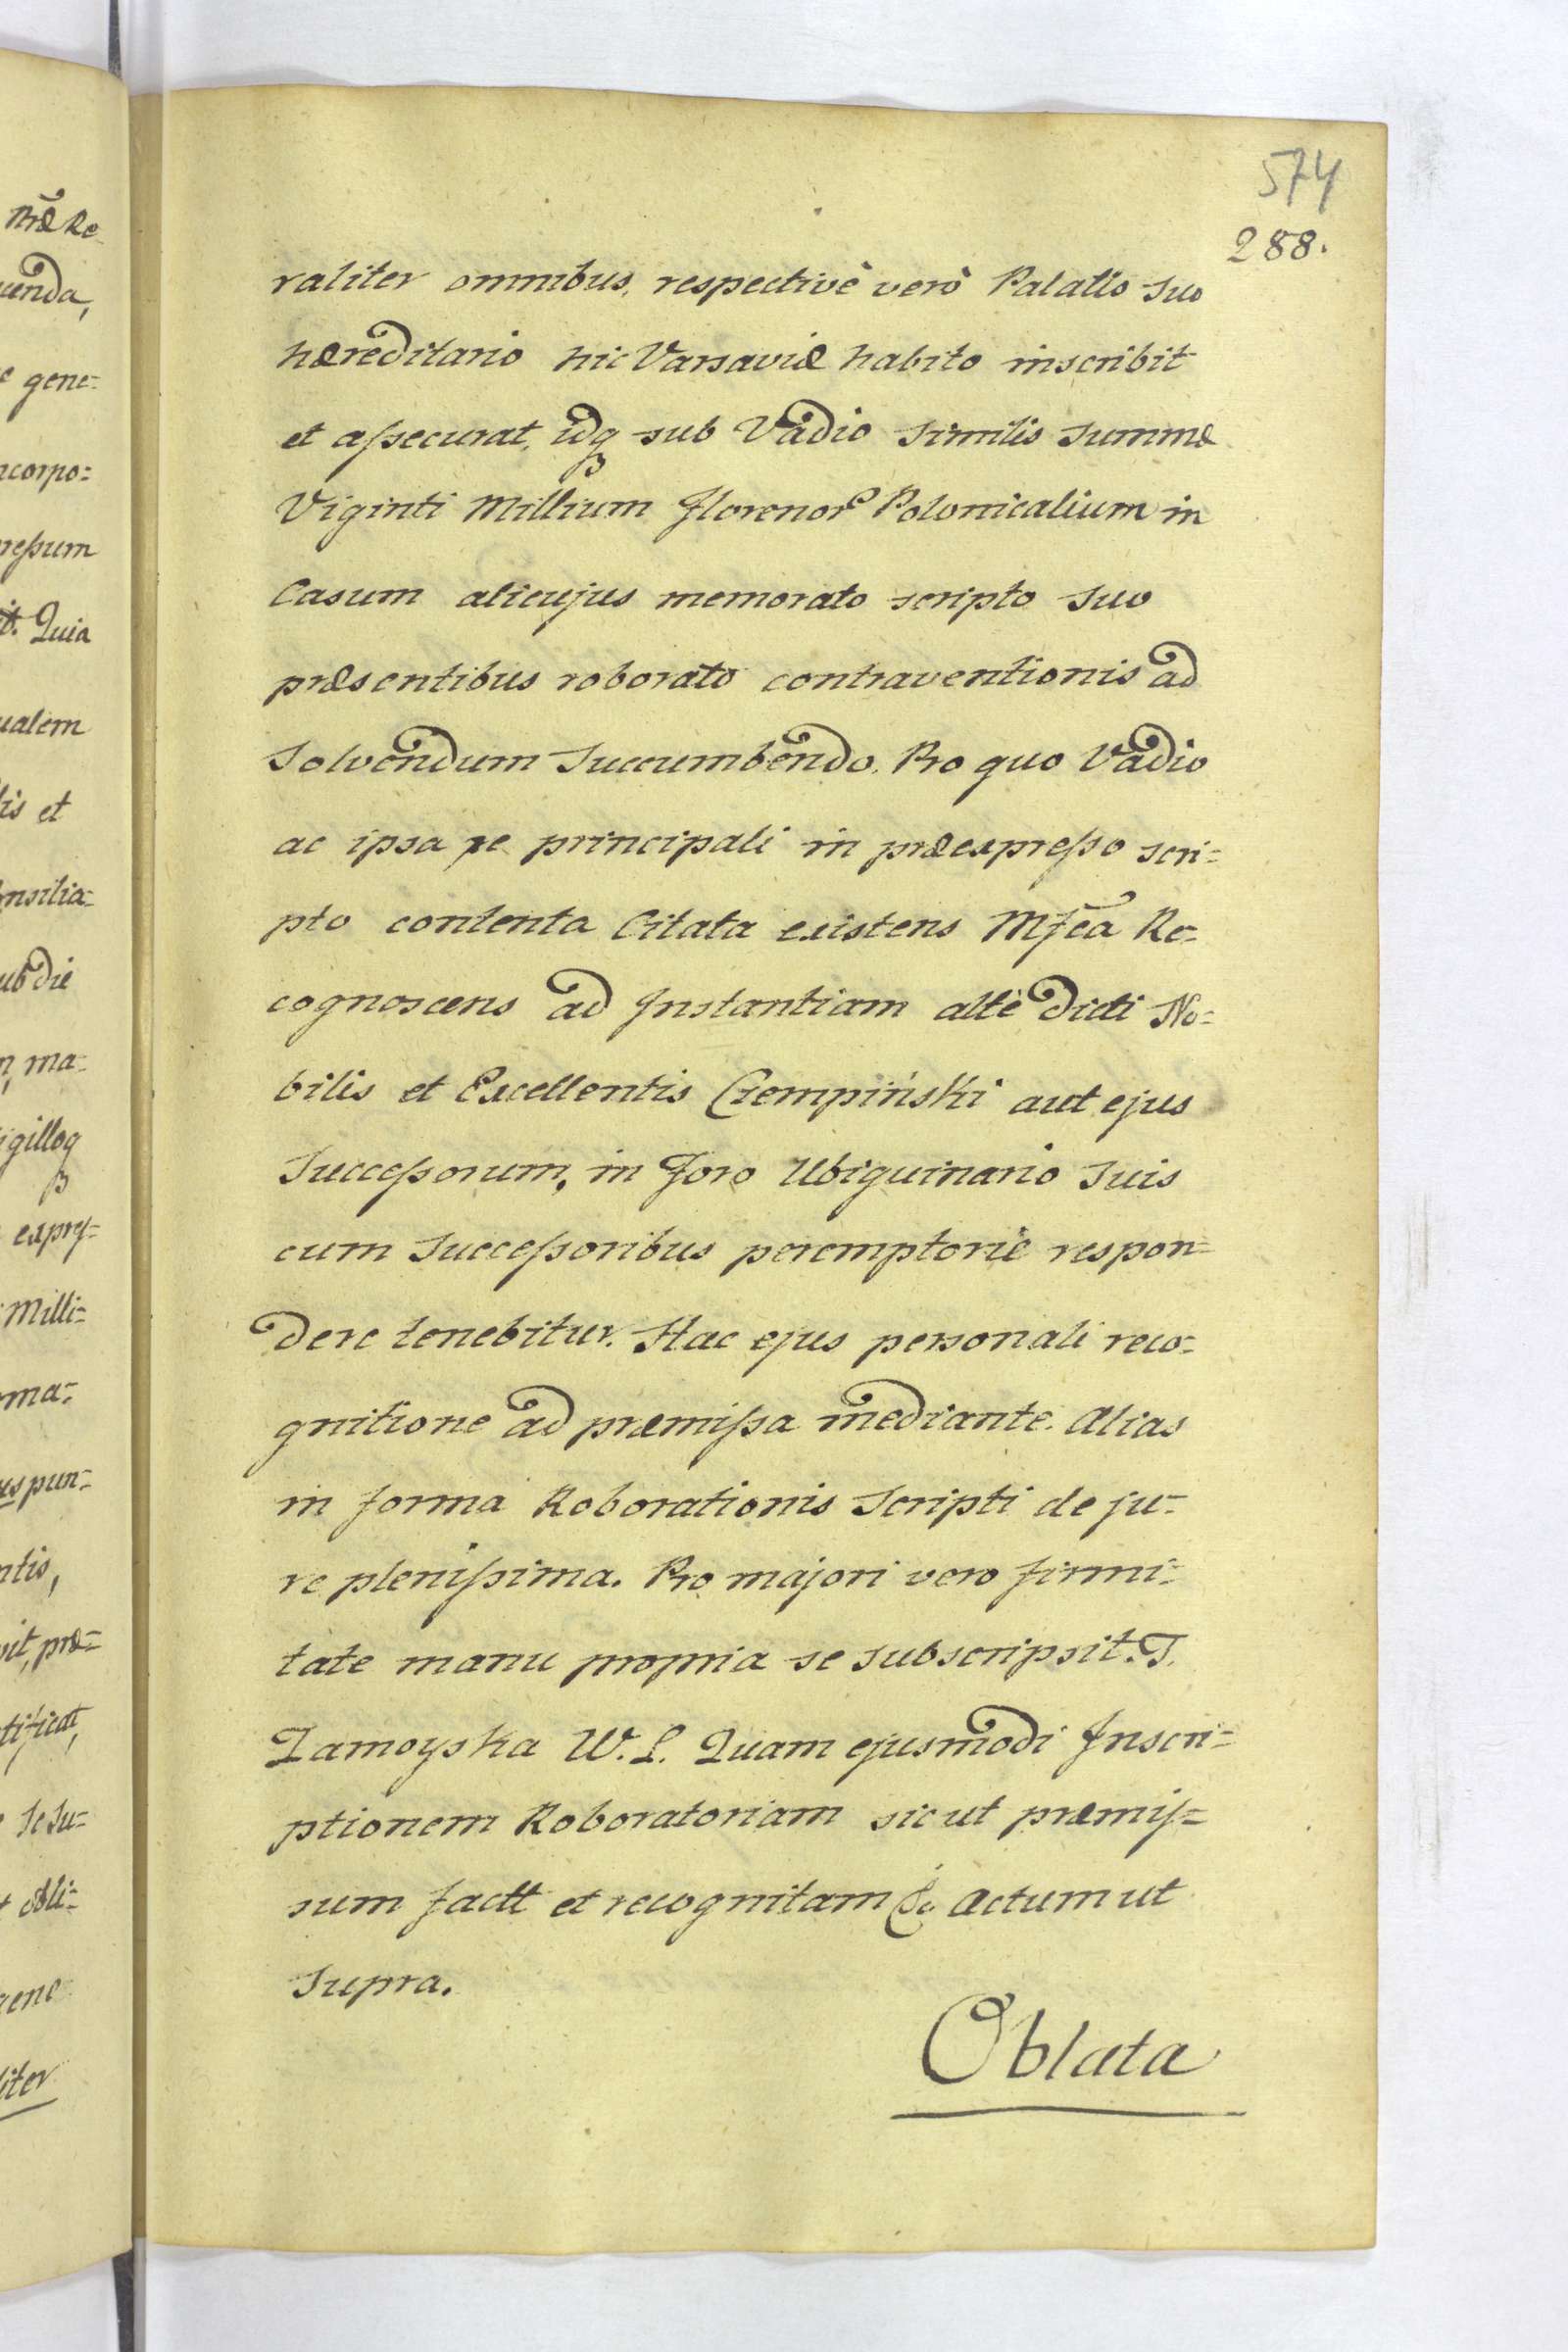 574
288.
raliter omnibus, respectivè verò Palatio suo
hæreditario hic Varsaviæ habito inscribit
et assecurat, idq sub Vadio similis summæ
Viginti Millium Florenor Polonicalium in
Casum alicujus memorato scripto suo
præsentibus roborato contraventionis ad
solvendum succumbendo. Pro quo Vadio
ac ipsa re principali in præexpresso scri=
pto contenta Citata existens Mfca Re=
cognoscens ad Instantiam altè dicti No=
bilis et Excellentis Czempiński aut ejus
Successorum, in Foro Ubiquinario suis
cum Successoribus peremptoriè respon=
dere tenebitur. Hac ejus personali reco=
gnitione ad præmissa mediante. Alias
in forma Roborationis Scripti de ju=
re plenissima. Pro majori vero firmi=
tate manu propria se subscripsit. T.
Zamoyska W. L. Quam ejusmodi Inscri=
ptionem Roboratoriam sicut præmis=
sum factt et recognitam &c Actum ut
Supra.
Oblata